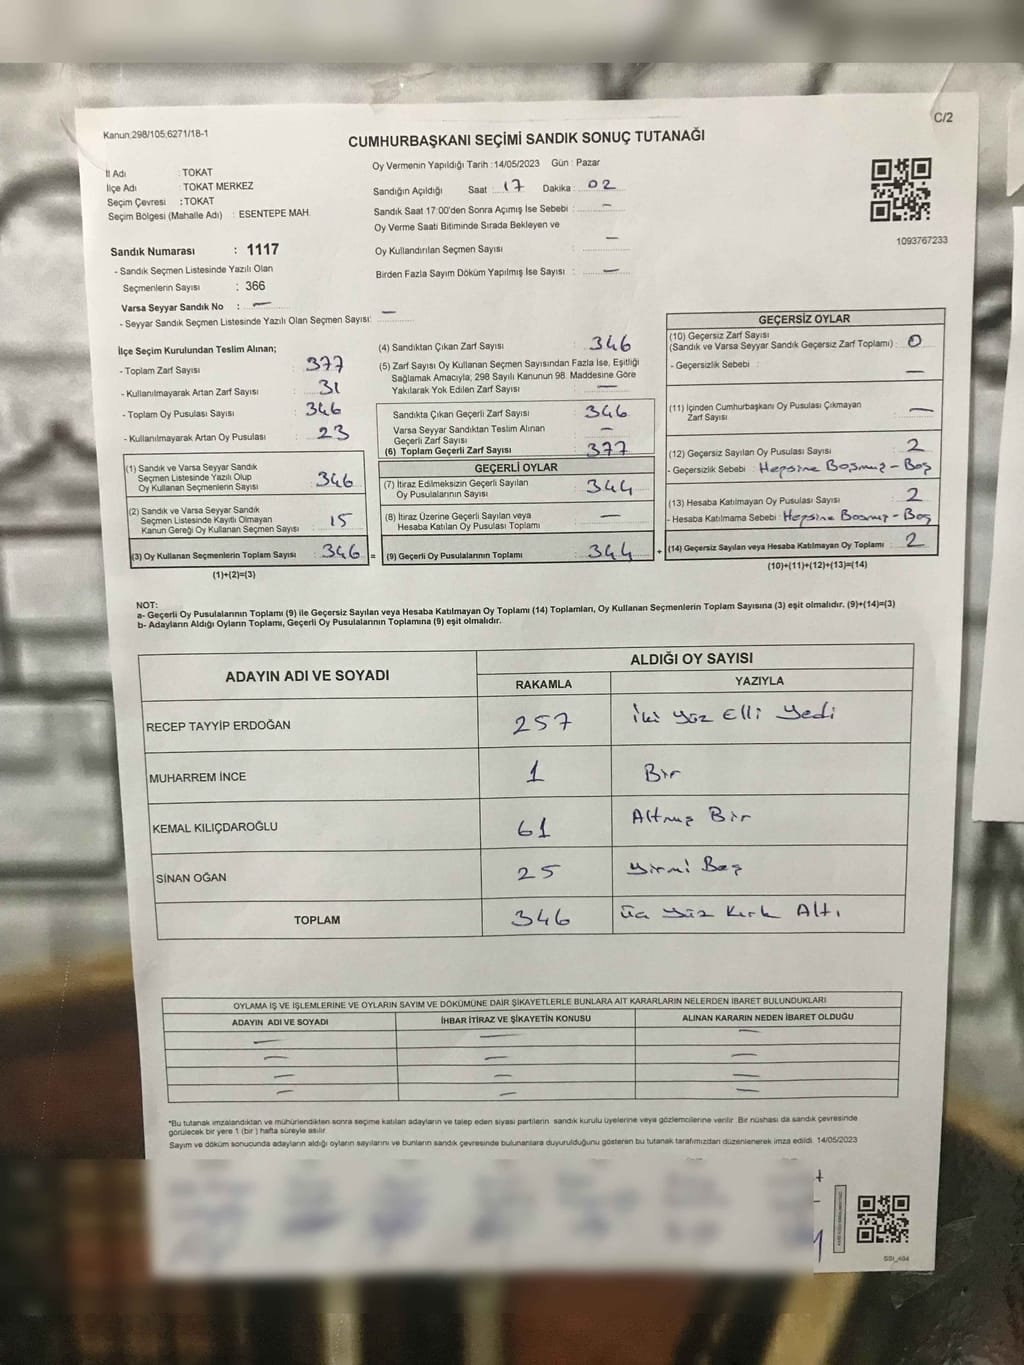 C/2
Kanun:298/105;6271/18-1
CUMHURBAŞKANI SEÇİMİ SANDIK SONUÇ TUTANAĞI
İl Adı : TOKAT
İlçe Adı : TOKAT MERKEZ
Seçim Çevresi : TOKAT
Seçim Bölgesi (Mahalle Adı) : ESENTEPE MAH.
Oy Vermenin Yapıldığı Tarih :14/05/2023 Gün : Pazar
Sandığın Açıldığı Saat : 17 Dakika : 02
Sandık Saat 17:00'den Sonra Açımış Ise Sebebi : —
Oy Verme Saati Bitiminde Sırada Bekleyen ve
Oy Kullandırılan Seçmen Sayısı : —
Birden Fazla Sayım Döküm Yapılmış Ise Sayısı : —
1093767233
Sandık Numarası : 1117
- Sandık Seçmen Listesinde Yazılı Olan
Seçmenlerin Sayısı : 366
Varsa Seyyar Sandık No : —
- Seyyar Sandık Seçmen Listesinde Yazılı Olan Seçmen Sayısı: —
İlçe Seçim Kurulundan Teslim Alınan;
- Toplam Zarf Sayısı : 377
- Kullanılmayarak Artan Zarf Sayısı : 31
- Toplam Oy Pusulası Sayısı : 346
- Kullanılmayarak Artan Oy Pusulası : 23
(1) Sandık ve Varsa Seyyar Sandık
Seçmen Listesinde Yazılı Olup
Oy Kullanan Seçmenlerin Sayısı : 346
(2) Sandık ve Varsa Seyyar Sandık
Seçmen Listesinde Kayıtlı Olmayan
Kanun Gereği Oy Kullanan Seçmen Sayısı : 15
(3) Oy Kullanan Seçmenlerin Toplam Sayısı : 346 =
(1)+(2)=(3)
(4) Sandıktan Çıkan Zarf Sayısı : 346
(5) Zarf Sayısı Oy Kullanan Seçmen Sayısından Fazla Ise, Eşitliği
Sağlamak Amacıyla; 298 Sayılı Kanunun 98. Maddesine Göre
Yakılarak Yok Edilen Zarf Sayısı : —
Sandıkta Çıkan Geçerli Zarf Sayısı : 346
Varsa Seyyar Sandıktan Teslim Alınan
Geçerli Zarf Sayısı : —
(6) Toplam Geçerli Zarf Sayısı : 377
GEÇERLİ OYLAR
(7) İtiraz Edilmeksizin Geçerli Sayılan
Oy Pusulalarının Sayısı : 344
(8) İtiraz Üzerine Geçerli Sayılan veya
Hesaba Katılan Oy Pusulası Toplamı : —
(9) Geçerli Oy Pusulalarının Toplamı : 344 +
GEÇERSİZ OYLAR
(10) Geçersiz Zarf Sayısı
(Sandık ve Varsa Seyyar Sandık Geçersiz Zarf Toplamı) : 0
- Geçersizlik Sebebi : —
(11) İçinden Cumhurbaşkanı Oy Pusulası Çıkmayan
Zarf Sayısı : —
(12) Geçersiz Sayılan Oy Pusulası Sayısı : 2
- Geçersizlik Sebebi : Hepsine Basmış - Boş
(13) Hesaba Katılmayan Oy Pusulası Sayısı : 2
- Hesaba Katılmama Sebebi : Hepsine Basmış - Boş
(14) Geçersiz Sayılan veya Hesaba Katılmayan Oy Toplamı : 2
(10)+(11)+(12)+(13)=(14)
NOT:
a- Geçerli Oy Pusulalarının Toplamı (9) ile Geçersiz Sayılan veya Hesaba Katılmayan Oy Toplamı (14) Toplamları, Oy Kullanan Seçmenlerin Toplam Sayısına (3) eşit olmalıdır. (9)+(14)=(3)
b- Adayların Aldığı Oyların Toplamı, Geçerli Oy Pusulalarının Toplamına (9) eşit olmalıdır.
ADAYIN ADI VE SOYADI
ALDIĞI OY SAYISI
RAKAMLA YAZIYLA
RECEP TAYYİP ERDOĞAN 257 İki Yüz Elli Yedi
MUHARREM İNCE 1 Bir
KEMAL KILIÇDAROĞLU 61 Altmış Bir
SİNAN OĞAN 25 Yirmi Beş
TOPLAM 346 Üç Yüz Kırk Altı
OYLAMA İŞ VE İŞLEMLERİNE VE OYLARIN SAYIM VE DÖKÜMÜNE DAİR ŞİKAYETLERLE BUNLARA AIT KARARLARIN NELERDEN İBARET BULUNDUKLARI
ADAYIN ADI VE SOYADI İHBAR İTİRAZ VE ŞİKAYETİN KONUSU ALINAN KARARIN NEDEN İBARET OLDUĞU
— — —
— — —
— — —
— — —
*Bu tutanak imzalandıktan ve mühürlendikten sonra seçime katılan adayların ve talep eden siyasi partilerin sandık kurulu üyelerine veya gözlemcilerine verilir. Bir nüshası da sandık çevresinde
görülecek bir yere 1 (bir ) hafta süreyle asılır.
Sayım ve döküm sonucunda adayların aldığı oyların sayılarını ve bunların sandık çevresinde bulunanlara duyurulduğunu gösteren bu tutanak tarafımızdan düzenlenerek imza edildi. 14/05/2023